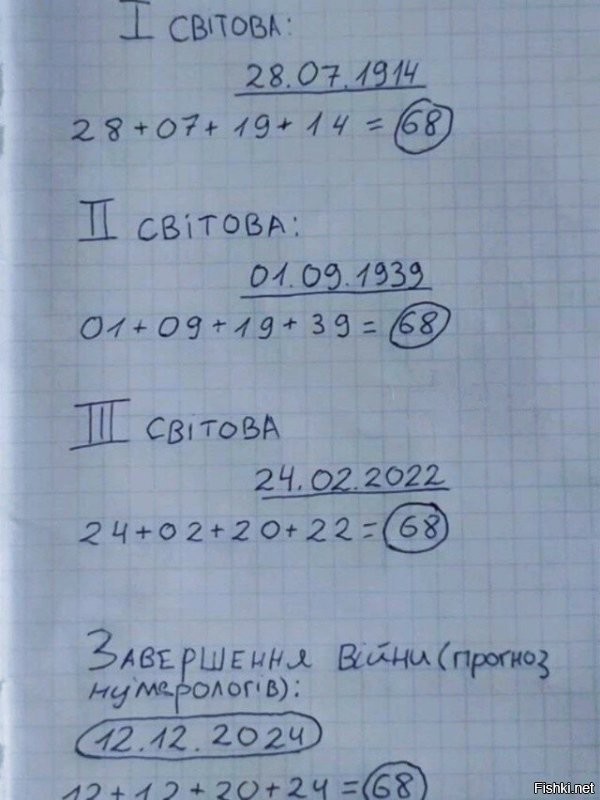 I СВІТОВА:
28.07.1914
28+07+19+14=68
II СВІТОВА:
01.09.1939
01+09+19+39=68
III СВІТОВА
24.02.2022
24+02+20+22=68
ЗАВЕРШЕННЯ ВІЙНИ (прогноз
нумерологів):
12.12.2024
12+12+20+24=68
Fishki.net